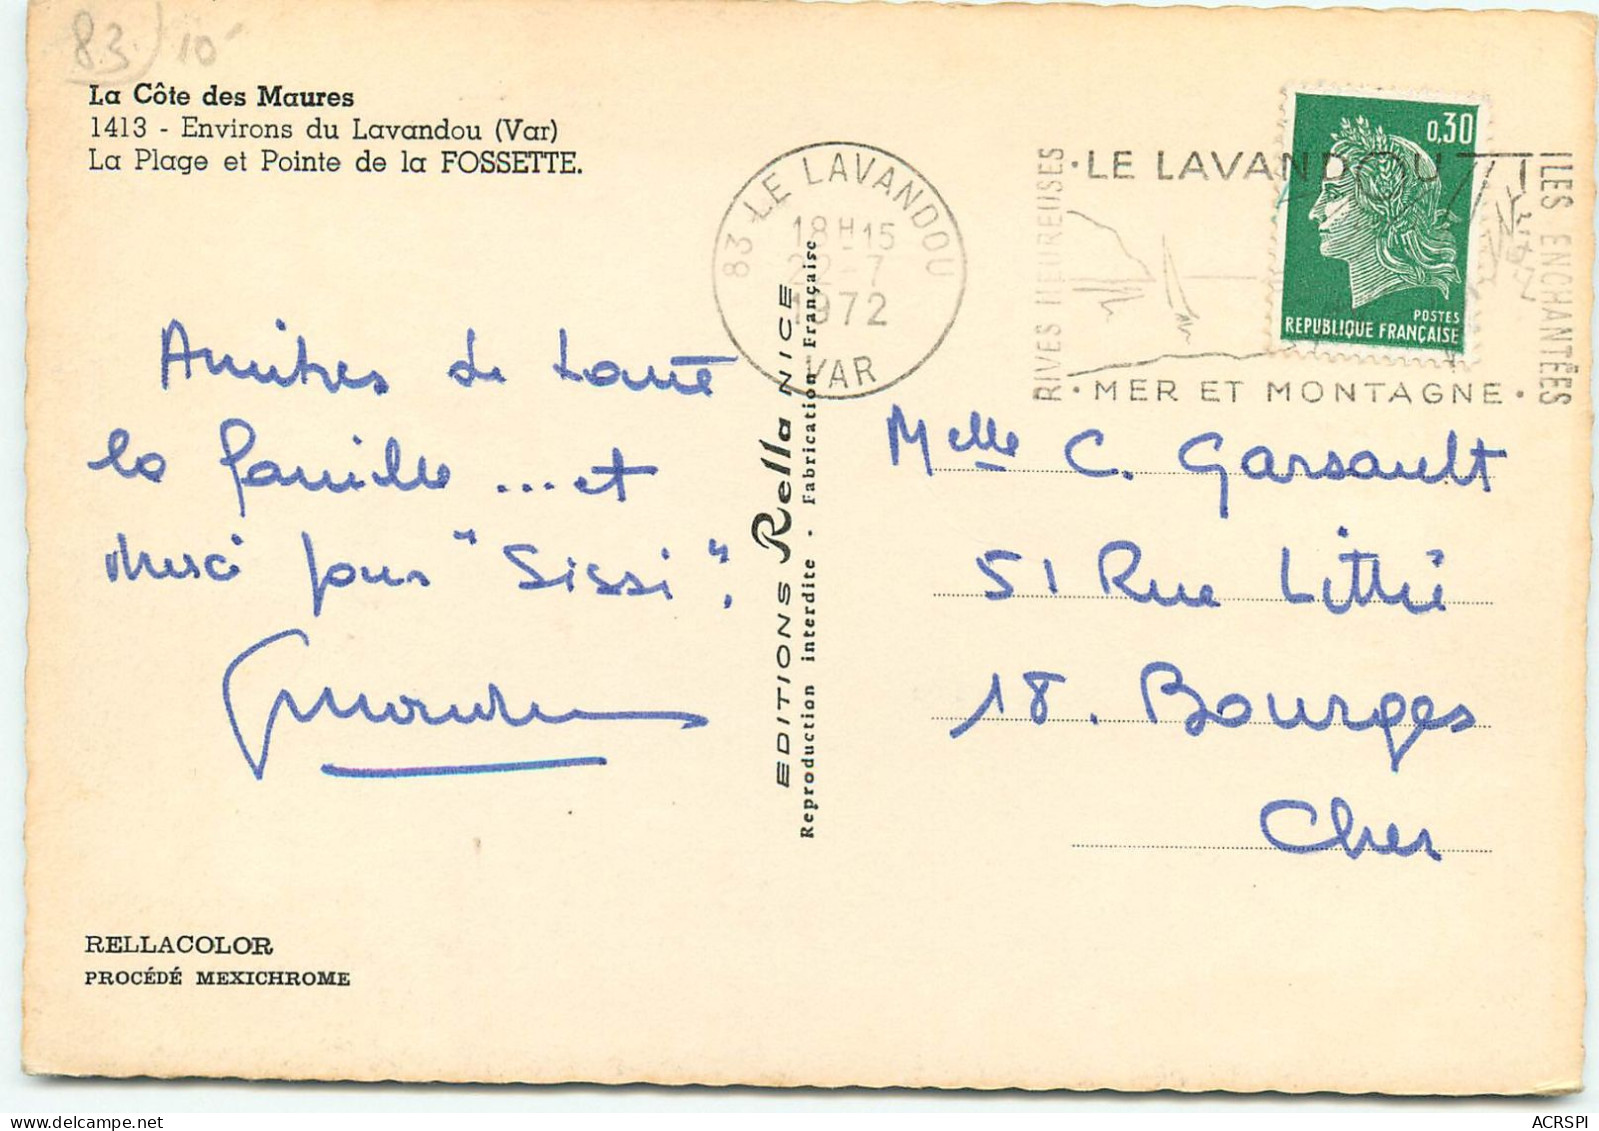 83 10
La Côte des Maures
1413 - Environs du Lavandou (Var)
La Plage et Pointe de la FOSSETTE.
83 LE LAVANDOU
18H15
22-7
1972
VAR
RIVES HEUREUSES
· LE LAVANDOU
· MER ET MONTAGNE ·
ILES ENCHANTÉES
0,30
POSTES
REPUBLIQUE FRANÇAISE
Amitiés de toute
la famille ... et
merci pour "Sissi".
EDITIONS Rella NICE
Reproduction interdite - Fabrication Française
Melle C. Garsault
51 Rue Littré
18. Bourges
Cher
RELLACOLOR
PROCÉDÉ MEXICHROME
ACRSPI